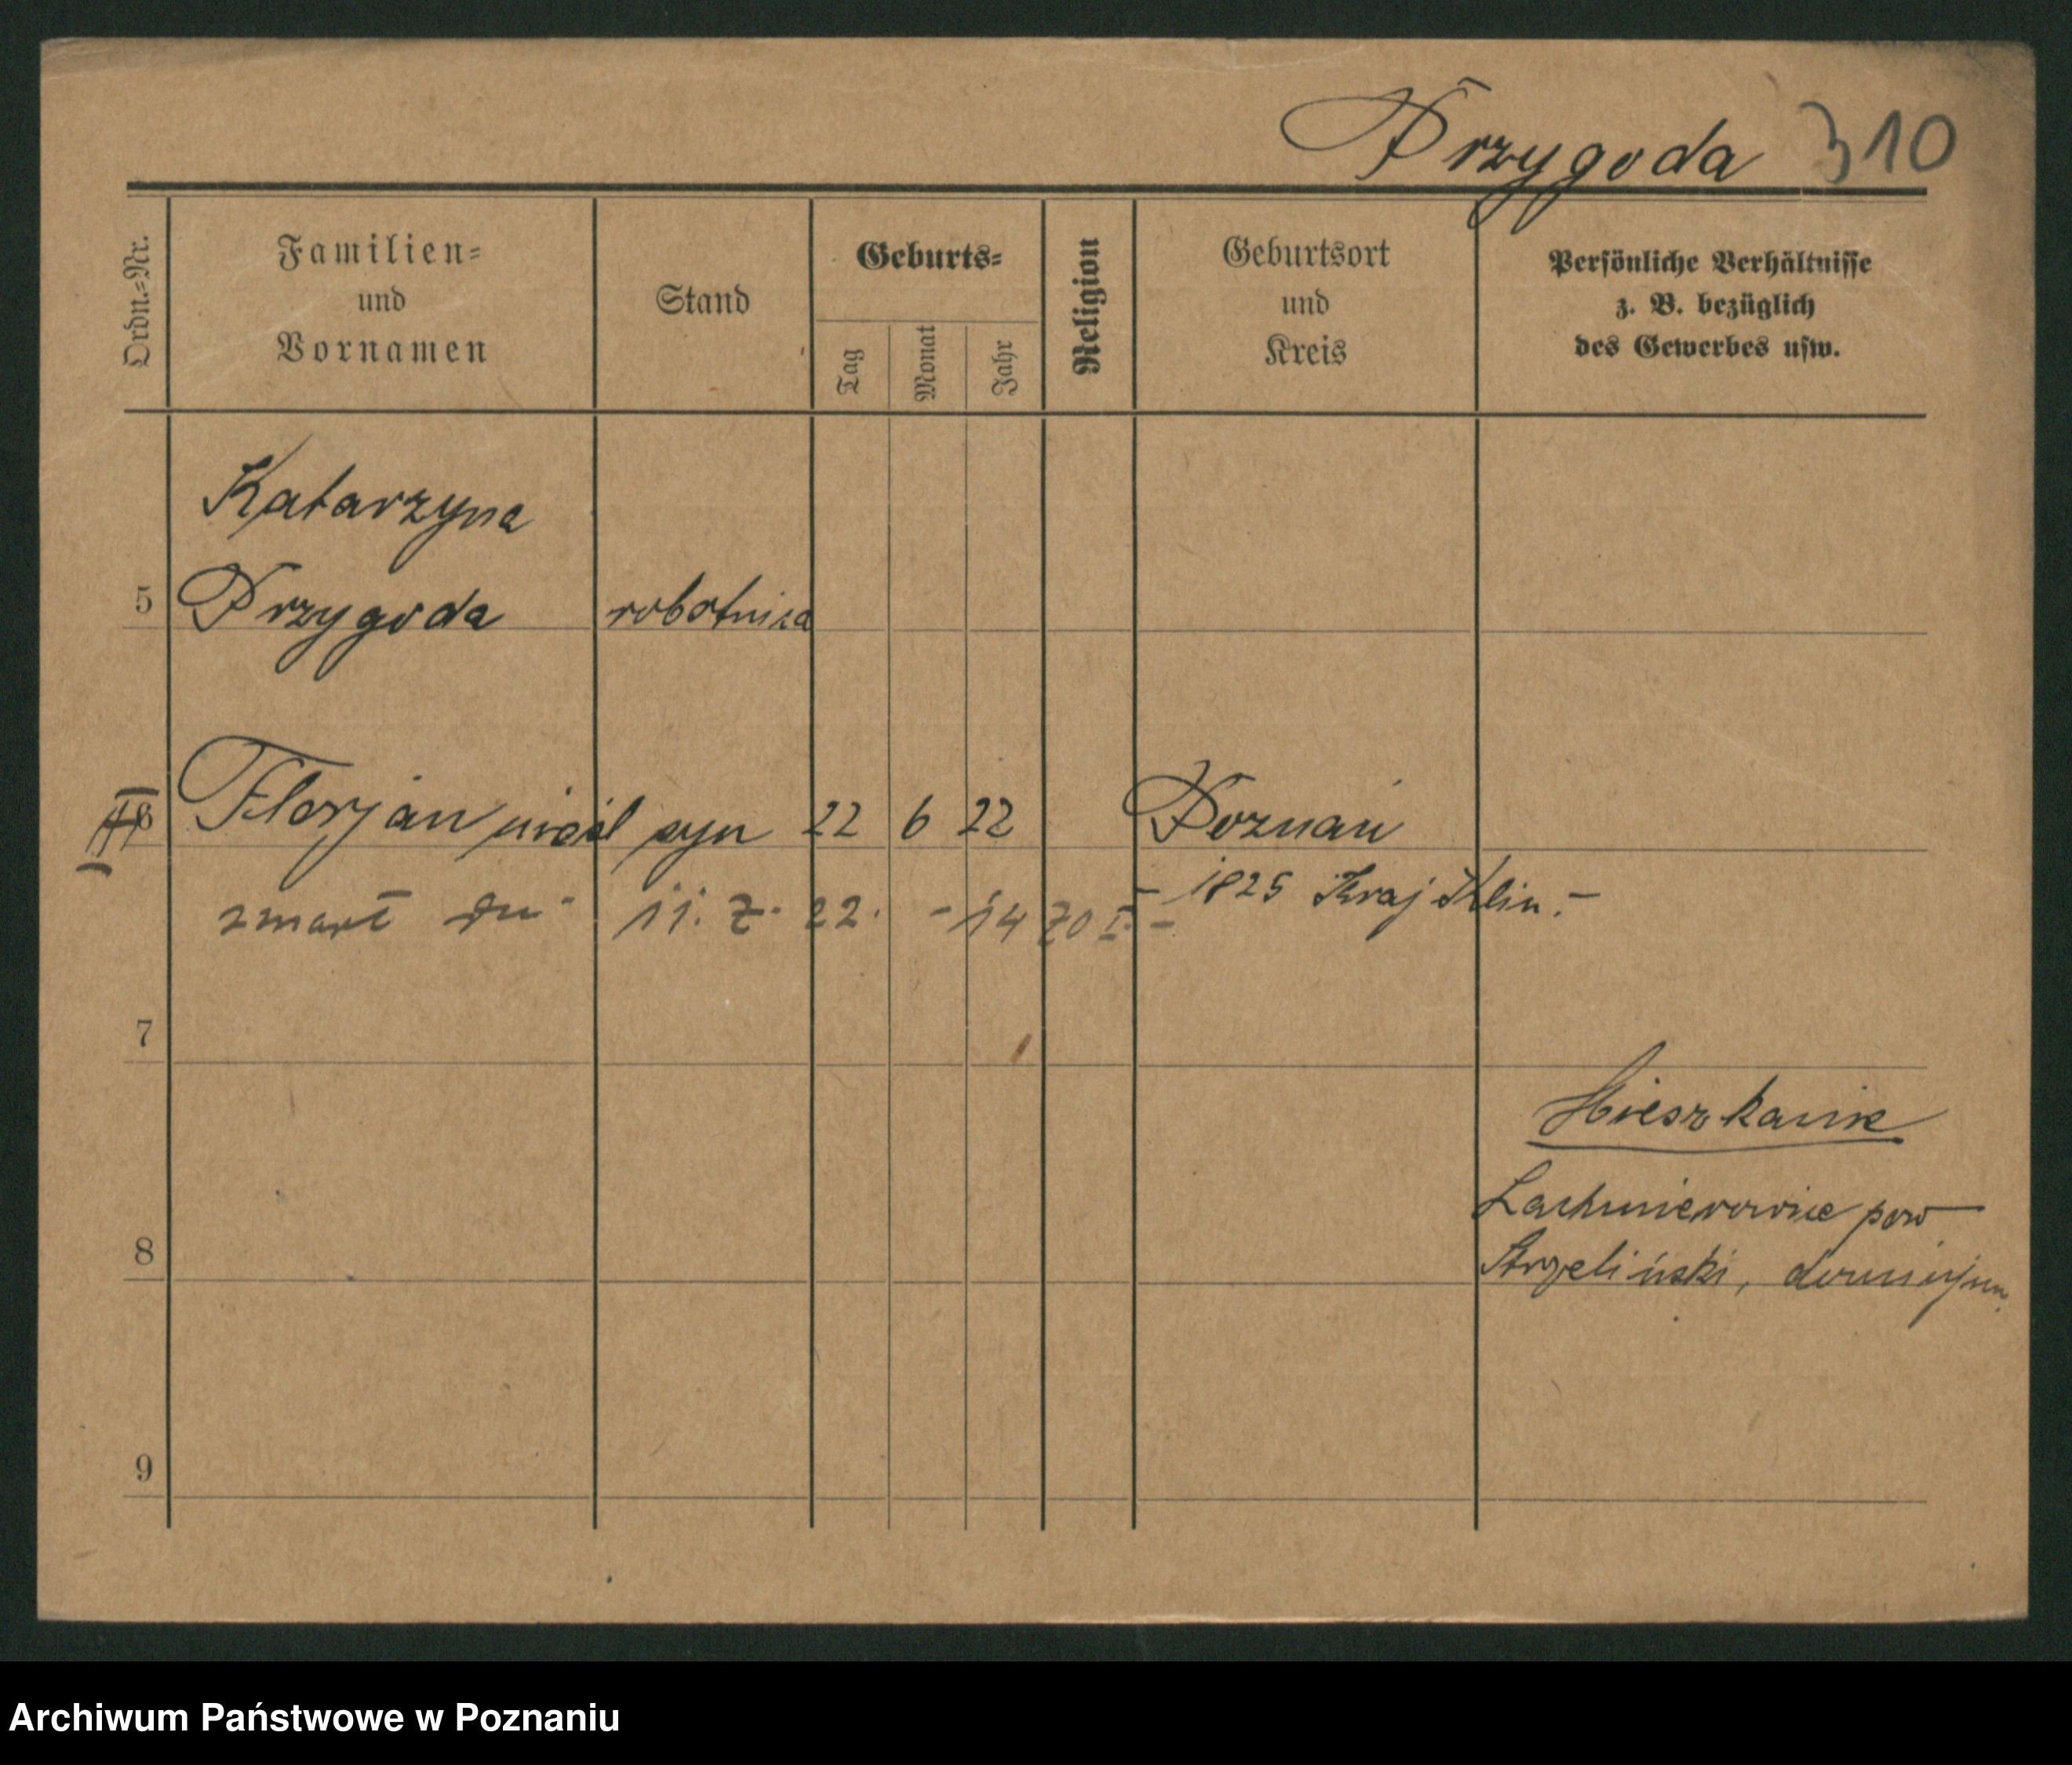 Przygoda 310
Ordn.-Nr.
Familien-
und
Vornamen
Stand
Geburts-
Tag
Monat
Jahr
Religion
Geburtsort
und
Kreis
Persönliche Verhältnisse
z. B. bezüglich
des Gewerbes usw.
Katarzyna
5 Przygoda robotnica
6 Florjan nieśl syn 22 6 22 Poznań
1825 Kraj Klin.-
zmarł dn. 11. 7. 22. - 1470 I. -
7
Mieszkanie
Lachmirowice pow
8 Strzeliński, dominjum.
9
Archiwum Państwowe w Poznaniu